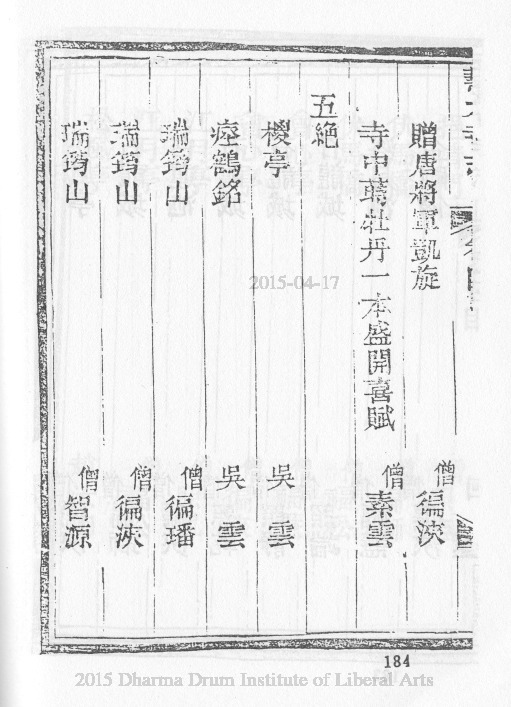 贈唐將軍凱旋 僧徧浹
寺中蒔牡丹一本盛開喜賦 僧素雲
五絶
稷亭 吳雲
瘞鶴銘 吳雲
瑞筠山 僧徧璠
瑞筠山 僧徧浹
瑞筠山 僧智源
184
2015-04-17
2015 Dharma Drum Institute of Liberal Arts